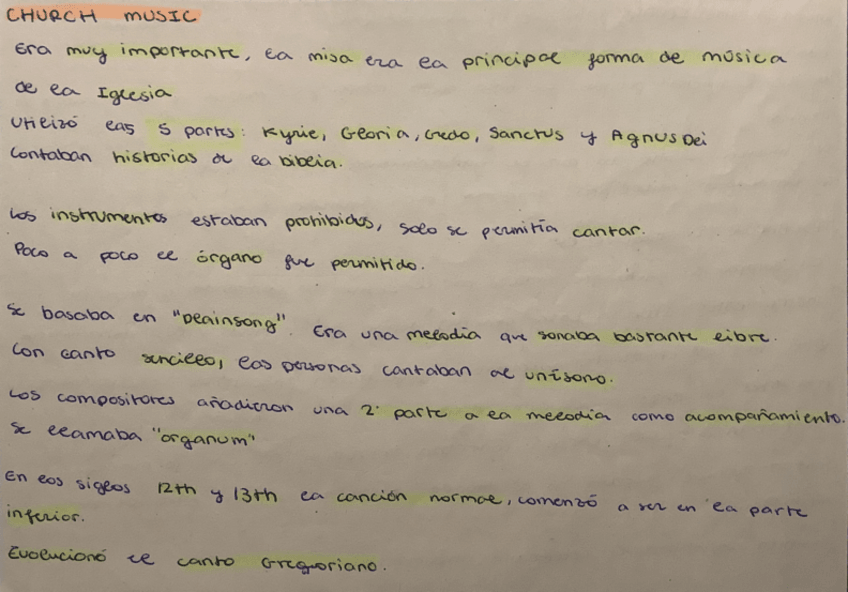 CHURCH MUSIC
Era muy importante, la misa era la principal forma de música
de la Iglesia
Utilizó las 5 partes: Kyrie, Gloria, Credo, Sanctus y Agnus Dei
Contaban historias de la biblia.
Los instrumentos estaban prohibidos, solo se permitía cantar.
Poco a poco el órgano fue permitido.
Se basaba en "Plainsong". Era una melodía que sonaba bastante libre.
Con canto sencillo, las personas cantaban al unísono.
Los compositores añadieron una 2ª parte a la melodía como acompañamiento.
Se llamaba "organum"
En los siglos 12th y 13th la canción normal, comenzó a ser en la parte
inferior.
Evolucionó el canto Gregoriano.